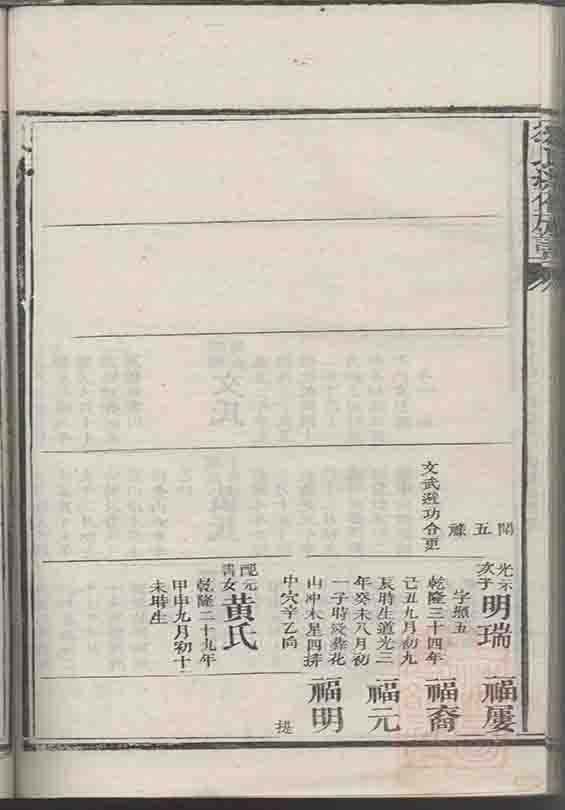 閗五
文武避功令更
次子
明瑞
字照五
乾隆三十四年
己丑九月初九
辰時生道光三
年癸未八月初
一子時歿葬花
山冲木星四排
中穴辛乙向
配元
書女
黃氏
乾隆二十九年
甲申九月初十
未時生
福屢
福裔
福元
福明
提